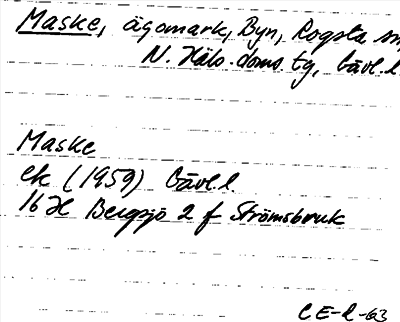 Maske, ägomark, Byn, Rogsta sn,
N. Häls. doms. tg, Gävl. l.
Maske
ek (1959) Gävl. l.
16 H Bergsjö 2 f Strömsbruk
CE-L-63